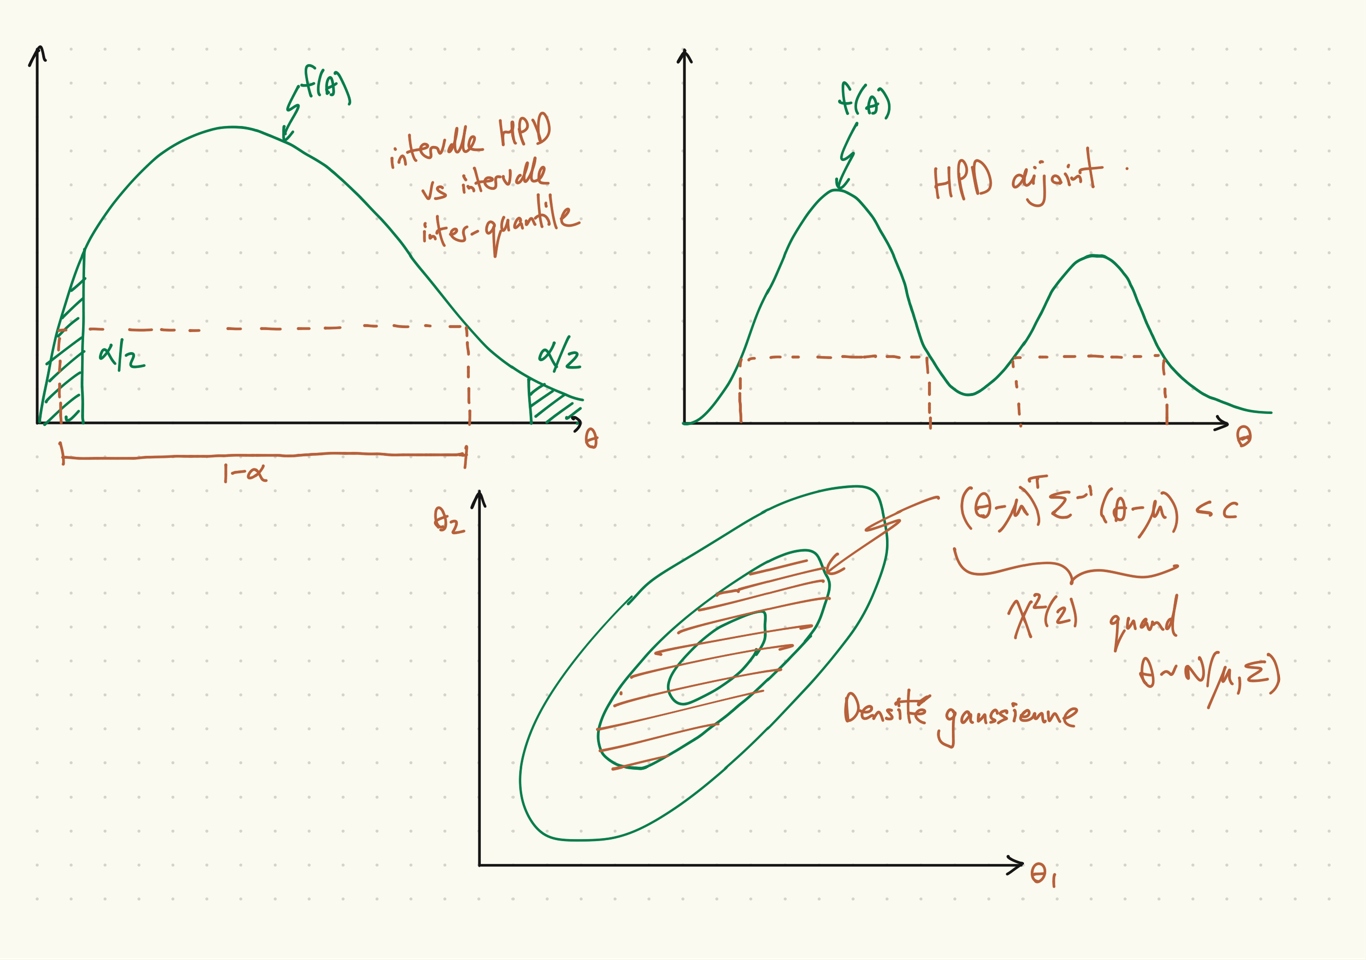 f(θ)
intervalle HPD
vs intervalle
inter-quantile
α/2
α/2
θ
1-α
f(θ)
HPD dijoint
θ
θ₂
(θ-μ)ᵀ Σ⁻¹ (θ-μ) < c
χ²(2) quand
θ ~ N(μ, Σ)
Densité gaussienne
θ₁